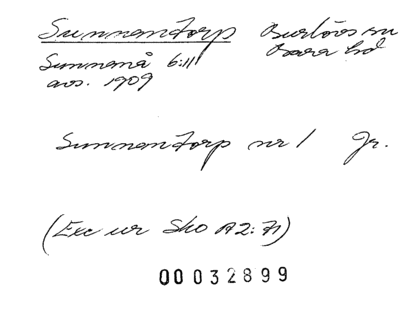 Sunnantorp Burlövs sn
Bara hd
Sunnanå 6:11
avs. 1909
Sunnantorp nr 1 Jr.
(Exc ur Sko A2:71)
00032899